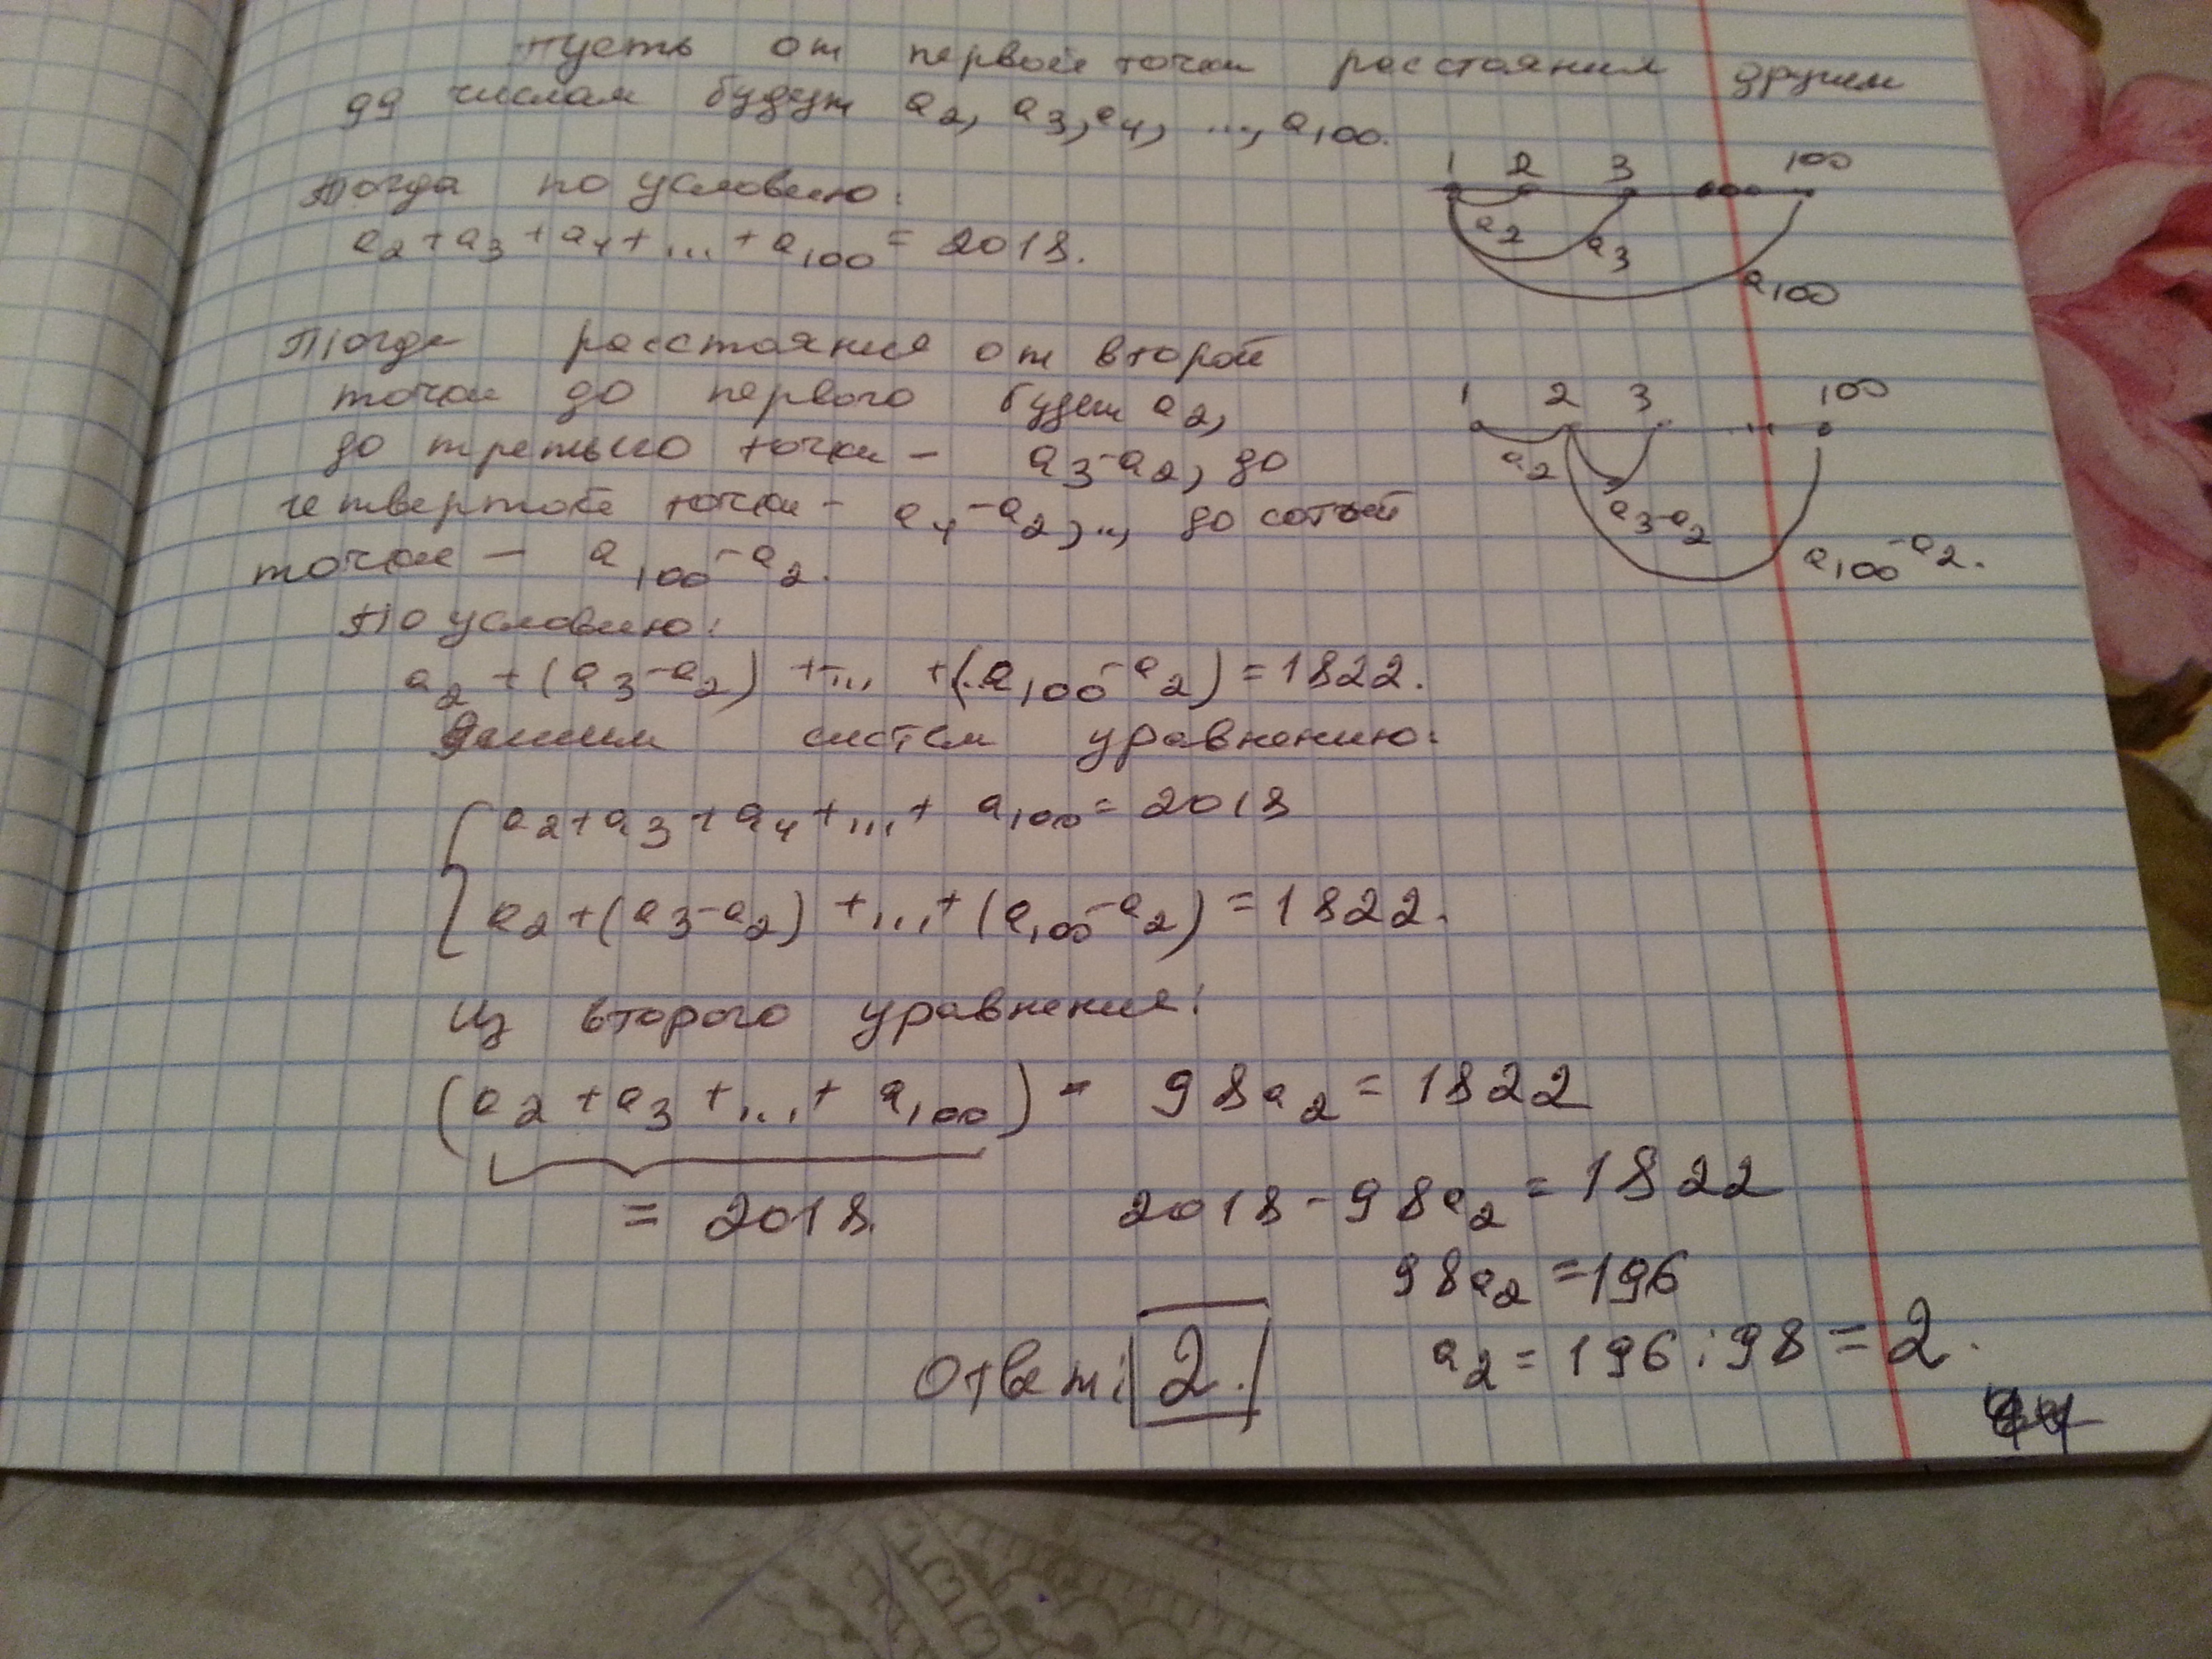 Пусть от первой точки расстояния другим
99 числам будут a₂, a₃, a₄, ..., a₁₀₀.
Тогда по условию:
a₂ + a₃ + a₄ + ... + a₁₀₀ = 2018.
1 2 3 100
a₂ a₃ a₁₀₀
Тогда расстояния от второй
точки до первого будет a₂,
до третьего точки - a₃-a₂, до
четвертой точки - a₄-a₂, .., до сотой
точки - a₁₀₀-a₂.
1 2 3 100
a₂ a₃-a₂ a₁₀₀-a₂.
По условию:
a₂ + (a₃-a₂) + ... + (a₁₀₀-a₂) = 1822.
систем уравнению:
a₂ + a₃ + a₄ + ... + a₁₀₀ = 2018
a₂ + (a₃-a₂) + ... + (a₁₀₀-a₂) = 1822.
Из второго уравнения:
(a₂ + a₃ + ... + a₁₀₀) - 98a₂ = 1822
= 2018. 2018 - 98a₂ = 1822
98a₂ = 196
a₂ = 196 : 98 = 2.
Ответ: 2.